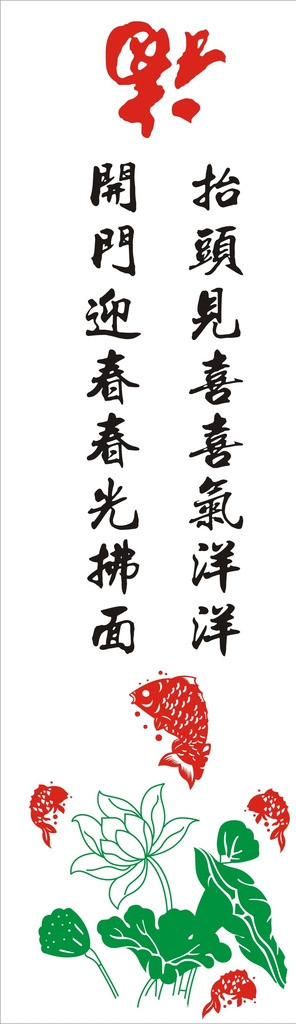 福
抬頭見喜喜氣洋洋
開門迎春春光拂面